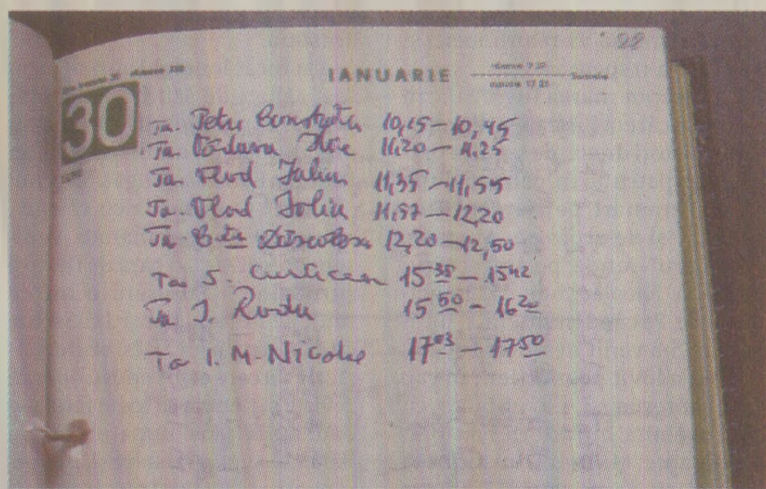 22
IANUARIE
30
Ta. Petre Constantin 10,15 – 10,45
Ta. Ilie 11,20 – 11,25
Ta. Vlad Iuliu 11,35 – 11,55
Ta. Vlad Iuliu 11,57 – 12,20
Ta. 12,20 – 12,50
Ta S. Curticean 15 35 – 15 42
Ta I. Radu 15 50 – 16 20
Ta I. M. Nicolae 17 03 – 17 50